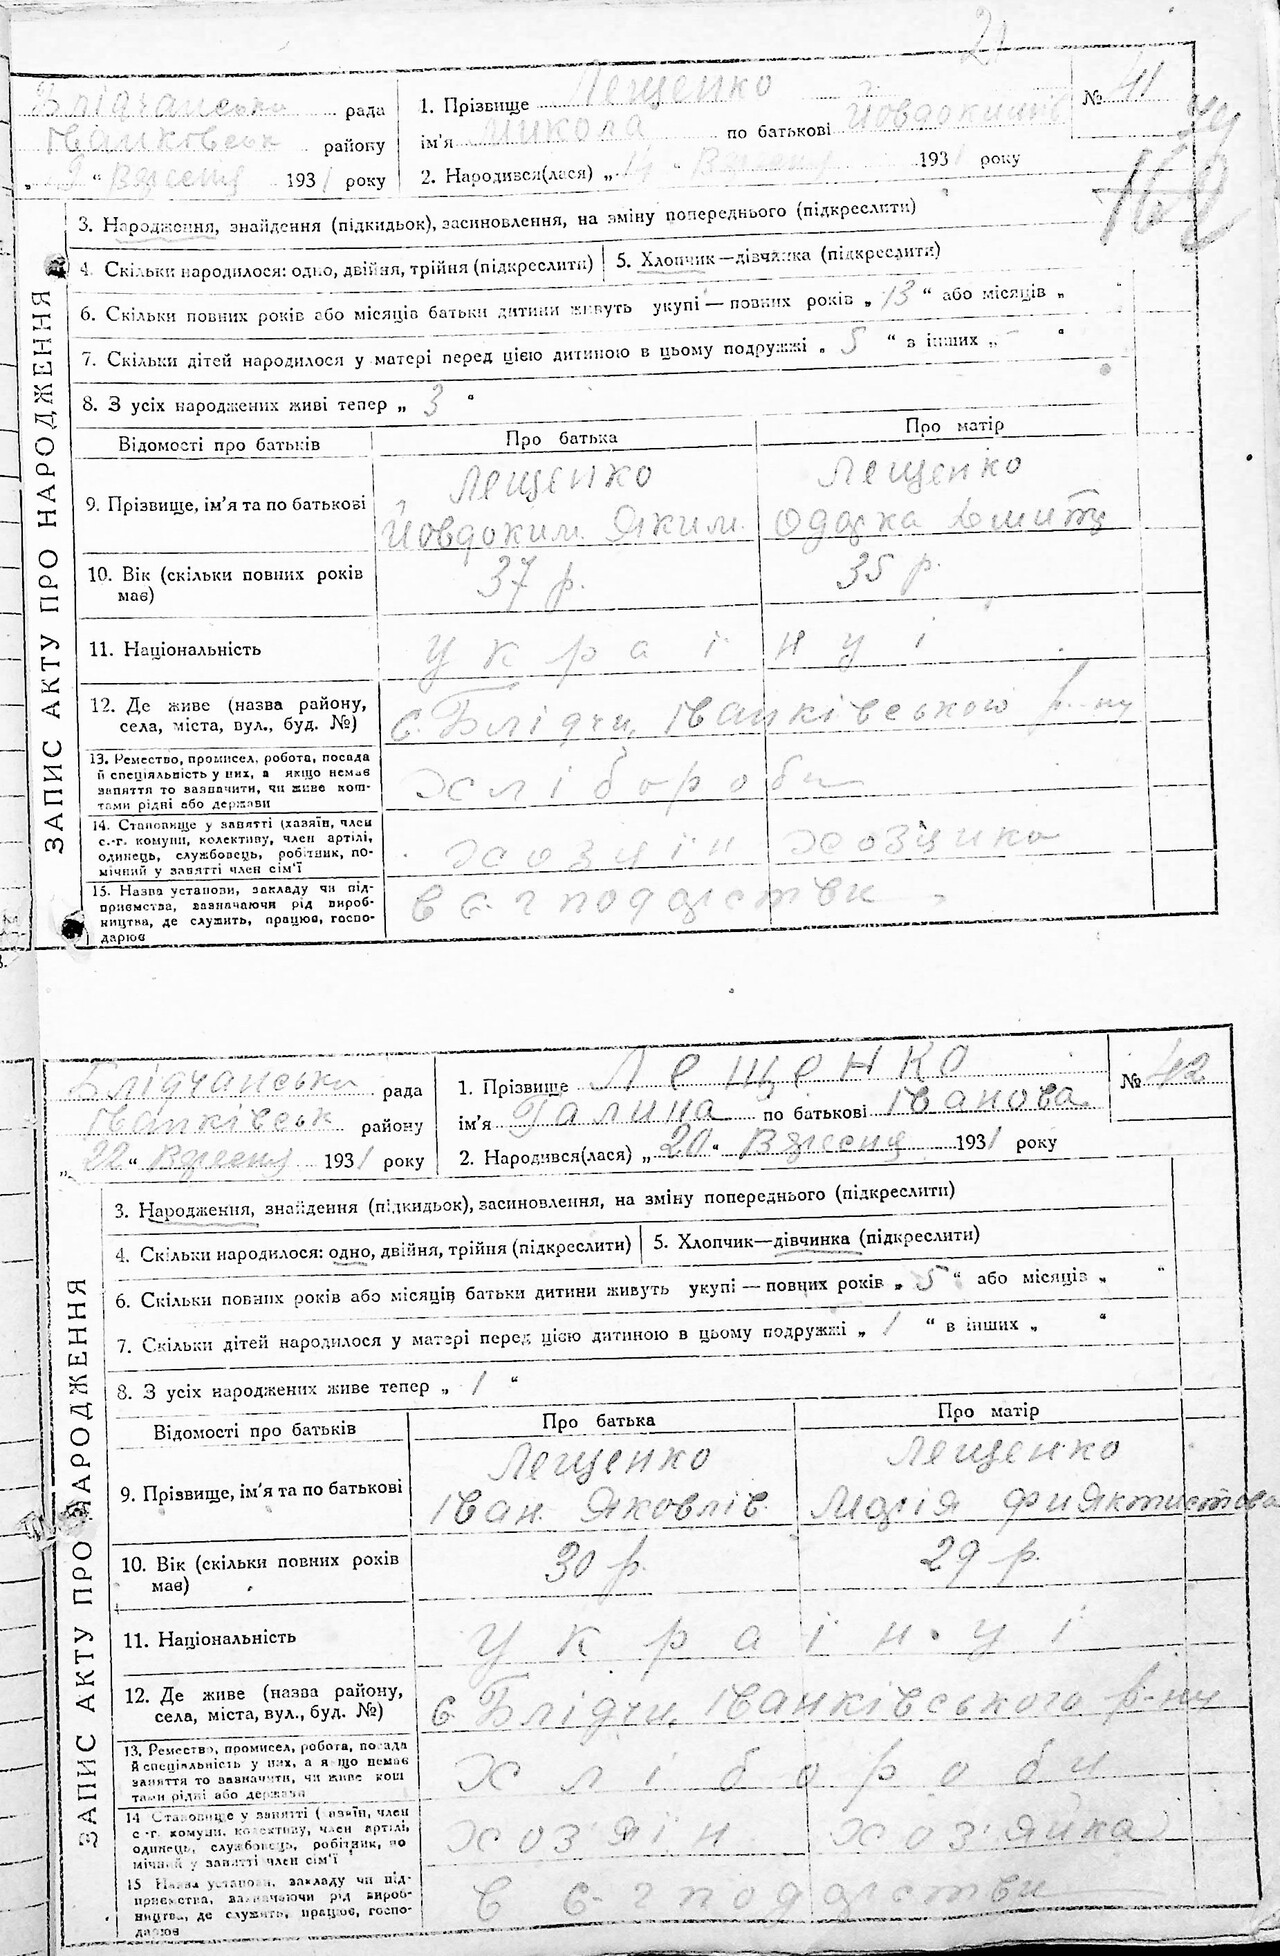 21
Блідчанська рада
Іванківськ району
„ " Вересня 1931 року
1. Прізвище Лещенко
ім'я Микола по батькові Йовдокимів
2. Народився(лася) „14" Вересня 1931 року
№ 41
44
162
ЗАПИС АКТУ ПРО НАРОДЖЕННЯ
3. Народження, знайдення (підкидьок), засиновлення, на зміну попереднього (підкреслити)
4. Скільки народилося: одно, двійня, трійня (підкреслити) 5. Хлопчик—дівчинка (підкреслити)
6. Скільки повних років або місяців батьки дитини живуть укупі — повних років „13" або місяців „ "
7. Скільки дітей народилося у матері перед цією дитиною в цьому подружжі „5" в інших „-"
8. З усіх народжених живі тепер „3"
Відомості про батьків Про батька Про матір
9. Прізвище, ім'я та по батькові
Лещенко Лещенко
Йовдоким. Яким. Одарка Дмит
10. Вік (скільки повних років має) 37 р. 35 р.
11. Національність українці
12. Де живе (назва району,
села, міста, вул., буд. №)
с. Блідчи, Іванківського р-ну
13. Ремество, промисел, робота, посада
й спеціяльність у них, а якщо немає
заняття то зазначити, чи живе кош-
тами рідні або держави
хлібороби
14. Становище у занятті (хазяїн, член
с.-г. комуни, колективу, член артілі,
одинець, службовець, робітник, по-
мічний у занятті член сім'ї
хозяїн хозяйка
15. Назва установи, закладу чи під-
приємства, зазначаючи рід вироб-
ництва, де служить, працює, госпо-
дарює
в с-г подарстви
Блідчанська рада
Іванківськ району
„22" Вересня 1931 року
1. Прізвище Лещенко
ім'я Галина по батькові Іванова
2. Народився(лася) „20" Вересня 1931 року
№ 42
ЗАПИС АКТУ ПРО НАРОДЖЕННЯ
3. Народження, знайдення (підкидьок), засиновлення, на зміну попереднього (підкреслити)
4. Скільки народилося: одно, двійня, трійня (підкреслити) 5. Хлопчик—дівчинка (підкреслити)
6. Скільки повних років або місяців батьки дитини живуть укупі — повних років „5" або місяців „ "
7. Скільки дітей народилося у матері перед цією дитиною в цьому подружжі „1" в інших „ "
8. З усіх народжених живе тепер „1"
Відомості про батьків Про батька Про матір
9. Прізвище, ім'я та по батькові
Лещенко Лещенко
Іван. Яковлів. Марія Фияктистова
10. Вік (скільки повних років має) 30 р. 29 р.
11. Національність українці
12. Де живе (назва району,
села, міста, вул., буд. №)
с. Блідчи, Іванківського р-ну
13. Ремество, промисел, робота, посада
й спеціяльність у них, а якщо немає
заняття то зазначити, чи живе кош
тами рідні або держави
хлібороби
14 Становище у занятті (хазяїн, член
с.-г. комуни, колективу, член артілі,
одинець, службовець, робітник, по
мічний у занятті член сім'ї
хоз'яїн хоз'яйка
15 Назва установи, закладу чи під-
приємства, зазначаючи рід вироб-
ництва, де служить, працює, госпо-
дарює
в с-г подарстви